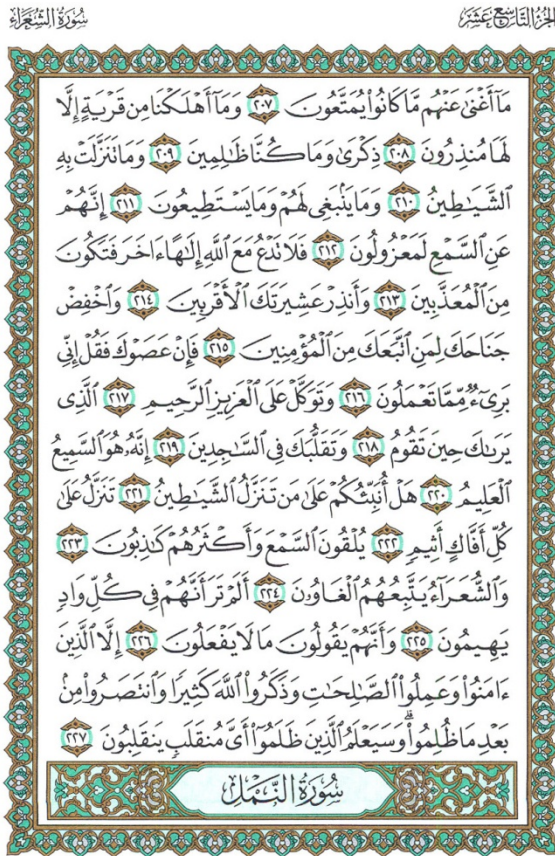 الجزء التاسع عشر
سورة الشعراء
مَآ أَغْنَىٰ عَنْهُم مَّا كَانُوا۟ يُمَتَّعُونَ ٢٠٧ وَمَآ أَهْلَكْنَا مِن قَرْيَةٍ إِلَّا
لَهَا مُنذِرُونَ ٢٠٨ ذِكْرَىٰ وَمَا كُنَّا ظَٰلِمِينَ ٢٠٩ وَمَا تَنَزَّلَتْ بِهِ
ٱلشَّيَٰطِينُ ٢١٠ وَمَا يَنۢبَغِى لَهُمْ وَمَا يَسْتَطِيعُونَ ٢١١ إِنَّهُمْ
عَنِ ٱلسَّمْعِ لَمَعْزُولُونَ ٢١٢ فَلَا تَدْعُ مَعَ ٱللَّهِ إِلَٰهًا ءَاخَرَ فَتَكُونَ
مِنَ ٱلْمُعَذَّبِينَ ٢١٣ وَأَنذِرْ عَشِيرَتَكَ ٱلْأَقْرَبِينَ ٢١٤ وَٱخْفِضْ
جَنَاحَكَ لِمَنِ ٱتَّبَعَكَ مِنَ ٱلْمُؤْمِنِينَ ٢١٥ فَإِنْ عَصَوْكَ فَقُلْ إِنِّى
بَرِىٓءٌ مِّمَّا تَعْمَلُونَ ٢١٦ وَتَوَكَّلْ عَلَى ٱلْعَزِيزِ ٱلرَّحِيمِ ٢١٧ ٱلَّذِى
يَرَىٰكَ حِينَ تَقُومُ ٢١٨ وَتَقَلُّبَكَ فِى ٱلسَّٰجِدِينَ ٢١٩ إِنَّهُۥ هُوَ ٱلسَّمِيعُ
ٱلْعَلِيمُ ٢٢٠ هَلْ أُنَبِّئُكُمْ عَلَىٰ مَن تَنَزَّلُ ٱلشَّيَٰطِينُ ٢٢١ تَنَزَّلُ عَلَىٰ
كُلِّ أَفَّاكٍ أَثِيمٍ ٢٢٢ يُلْقُونَ ٱلسَّمْعَ وَأَكْثَرُهُمْ كَٰذِبُونَ ٢٢٣
وَٱلشُّعَرَآءُ يَتَّبِعُهُمُ ٱلْغَاوُۥنَ ٢٢٤ أَلَمْ تَرَ أَنَّهُمْ فِى كُلِّ وَادٍ
يَهِيمُونَ ٢٢٥ وَأَنَّهُمْ يَقُولُونَ مَا لَا يَفْعَلُونَ ٢٢٦ إِلَّا ٱلَّذِينَ
ءَامَنُوا۟ وَعَمِلُوا۟ ٱلصَّٰلِحَٰتِ وَذَكَرُوا۟ ٱللَّهَ كَثِيرًا وَٱنتَصَرُوا۟ مِنۢ
بَعْدِ مَا ظُلِمُوا۟ ۗ وَسَيَعْلَمُ ٱلَّذِينَ ظَلَمُوٓا۟ أَىَّ مُنقَلَبٍ يَنقَلِبُونَ ٢٢٧
سُورَةُ النَّمْل